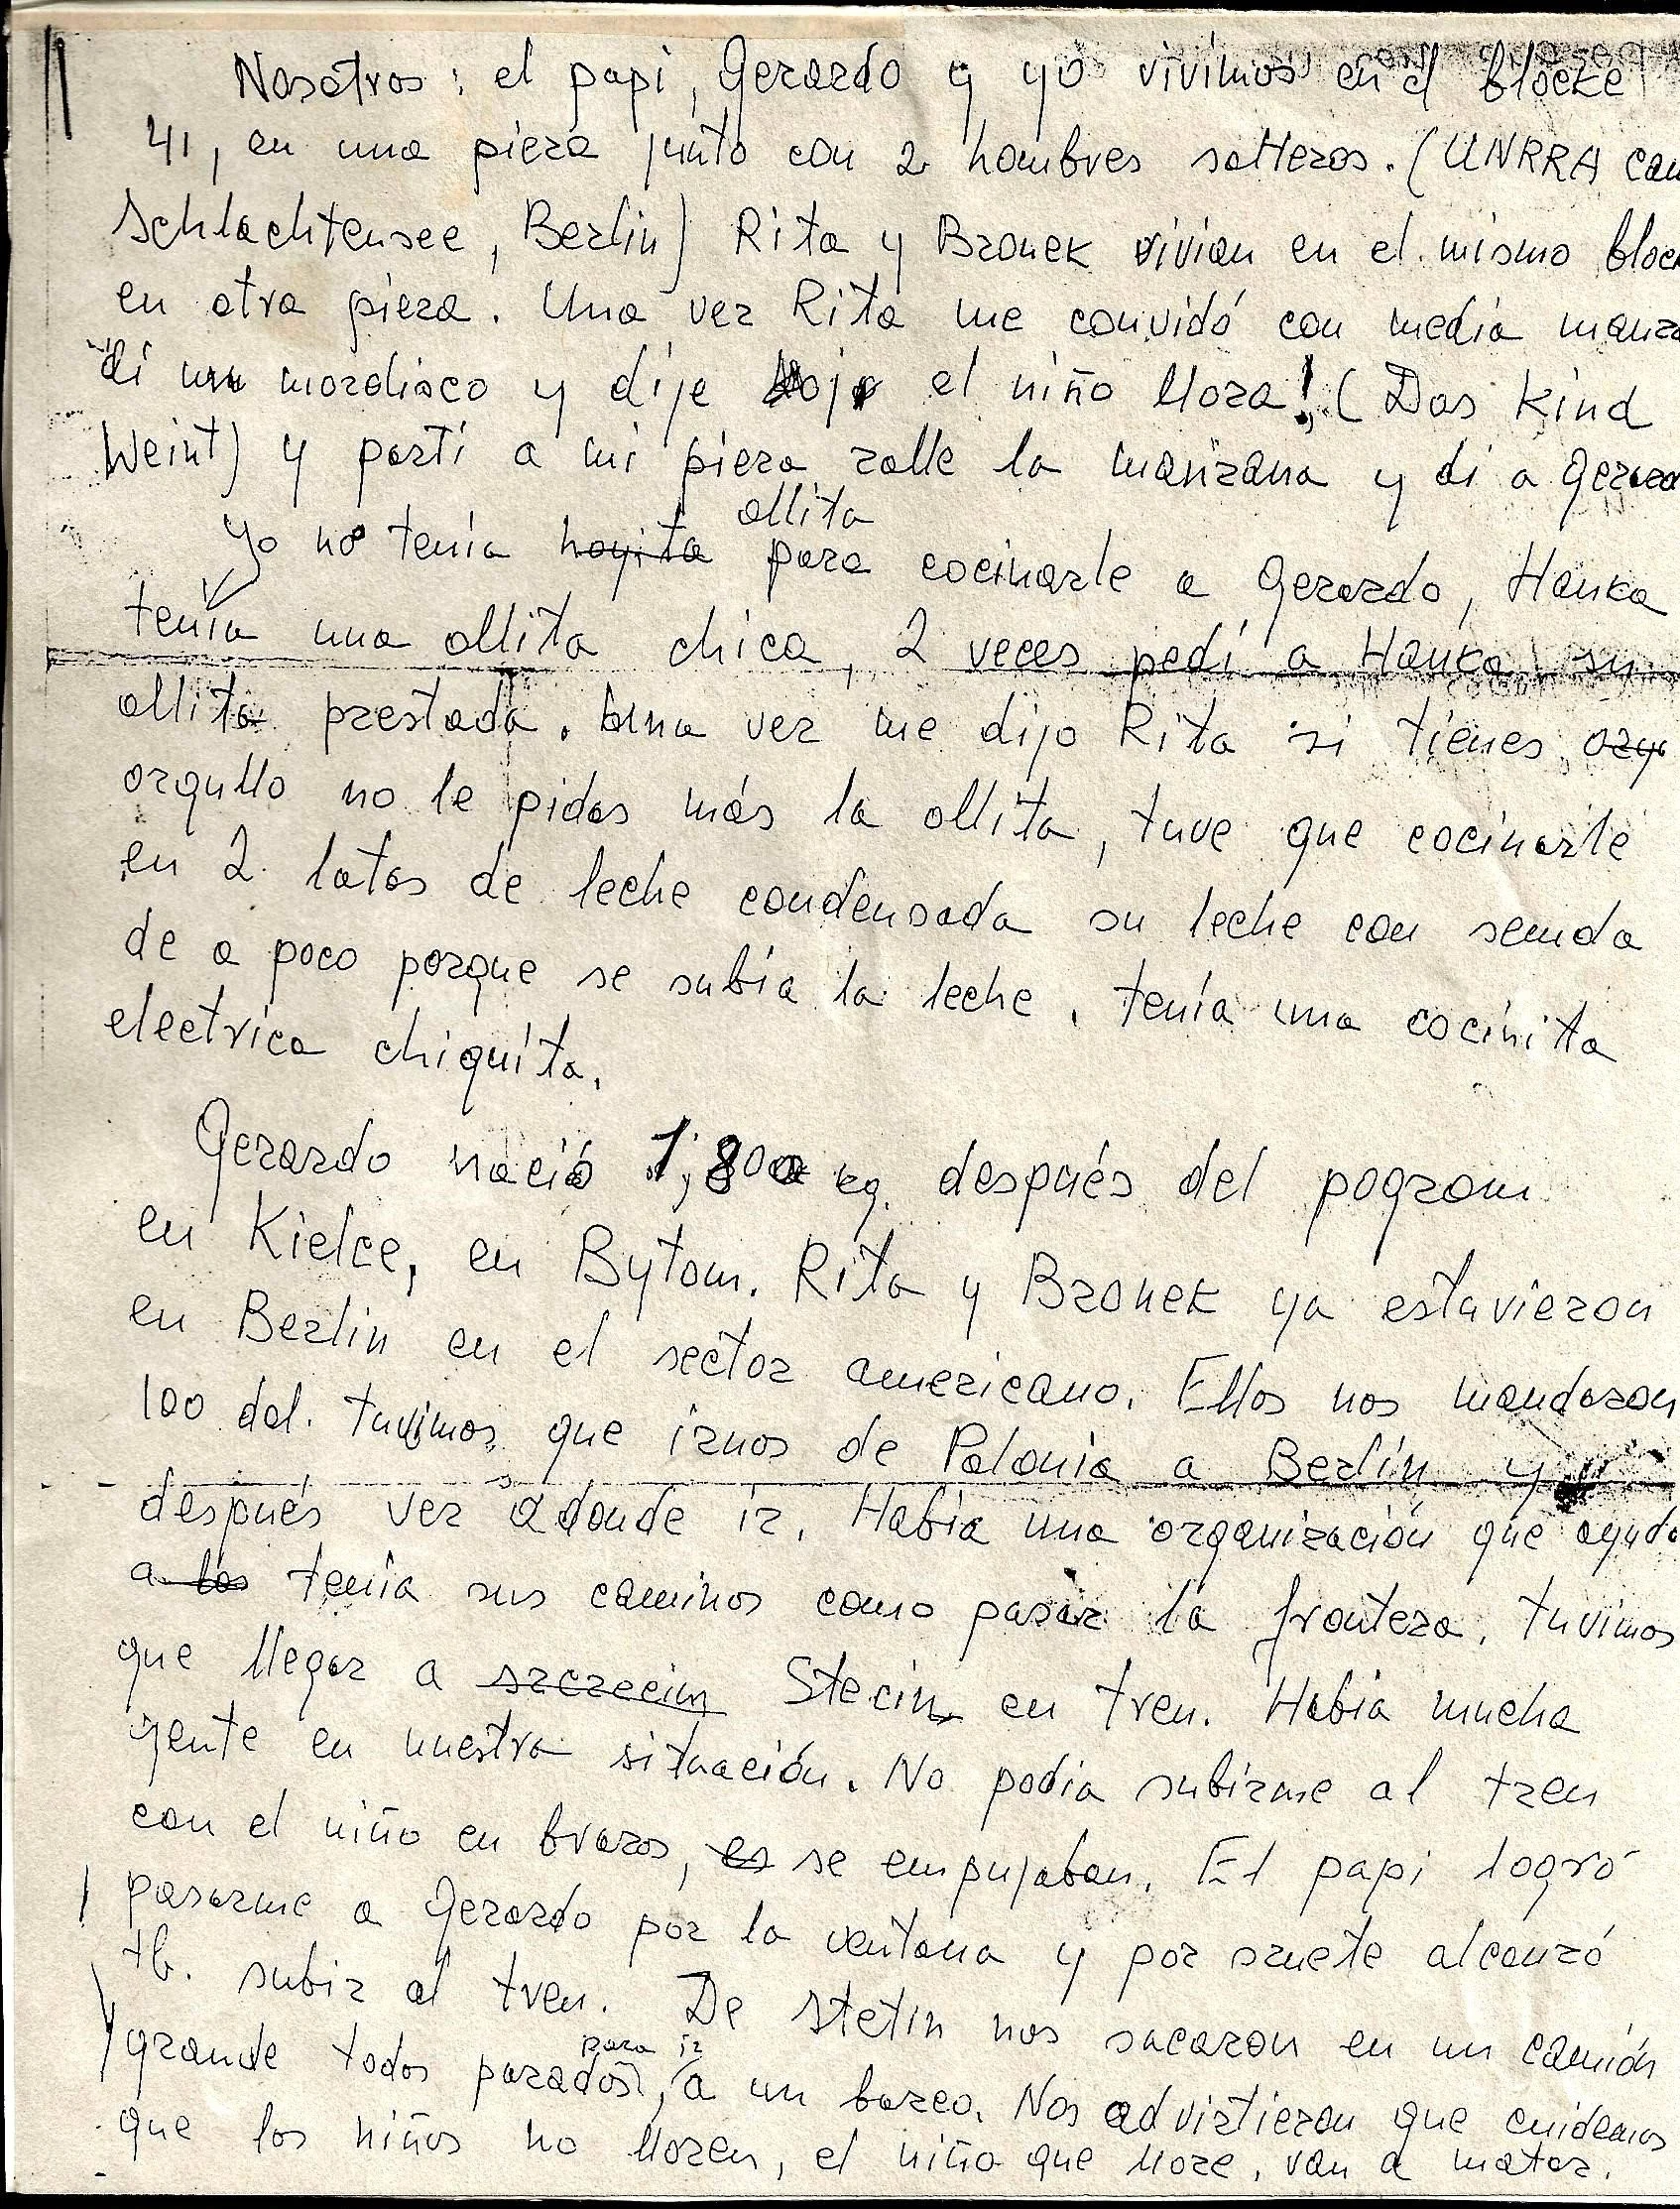 Nosotros: el papi, Gerardo y yo vivimos en el blocke
41, en una pieza junto con 2 hombres solteros. (UNRRA cam
Schlachtensee, Berlin) Rita y Bronek vivian en el mismo bloc
en otra pieza. Una vez Rita me convidó con media manza
di un mordisco y dije el niño lloza! (Das Kind
Weint) y parti a mi pieza rallé la manzana y di a Gerard
ollita
Yo no tenía hoyita para cocinarle a Gerardo, Hanka
tenía una ollita chica, 2 veces pedí a Hanka su
ollita prestada. Una vez me dijo Rita si tienes orgu
orgullo no le pidas más la ollita, tuve que cocinarle
en 2 latas de leche condensada su leche con semola
de a poco porque se subía la leche. tenía una cocinita
electrica chiquita.
Gerardo nació 1,800 kg. después del pogrom
en Kielce, en Bytom. Rita y Bronek ya estuvieron
en Berlin en el sector americano. Ellos nos mandaron
100 dol. tuvimos que irnos de Polonia a Berlín y
después ver adonde ir. Había una organización que ayuda
a los tenía sus caminos como pasar la frontera. tuvimos
que llegar a szczecin Stecin en tren. Había mucha
gente en nuestra situación. No podia subirme al tren
con el niño en brazos, es se empujaban. El papi logró
pasarme a Gerardo por la ventana y por suerte alcanzó
tb. subir al tren. De Stetin nos sacaron en un camión
para ir
grande todos parados, a un barco. Nos advirtieron que cuidemos
que los niños no lloren, el niño que llore, van a matar.